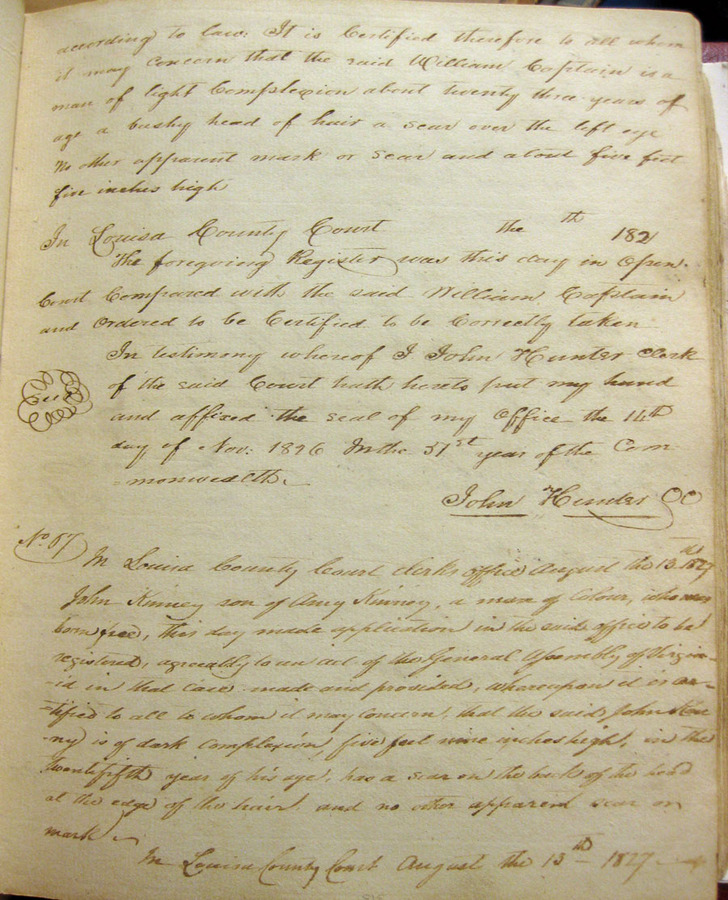 according to law: It is Certified therefore to all whom
it may Concern that the said William Coptain is a
man of light Complexion about twenty three years of
age a bushy head of hair a scar over the left eye
No other apparent mark or Scar and about five feet
five inches high
In Louisa County Court the th 182
The foregoing Register was this day in Open
Court Compared with the said William Coptain
and Ordered to be Certified to be Correctly taken
In testimony whereof I John Hunter Clerk
of the said Court hath hereto put my hand
and affixed the seal of my Office the 14th
day of Nov: 1826 In the 51st year of the Com
=monwealth.
John Hunter CC
No. 67
In Louisa County Court clerks office August the 13th 1827
John Kinney son of Amy Kinney, a man of Colour, who was
born free, this day made application in the said office to be
registered, agreeably to an act of the General Assembly of Virgin-
-ia in that case made and provided, whereupon it is cer-
-tified to all to whom it may Concern, that the said John Kin
-ny is of dark Complexion, five feet nine inches high, in the
twentififth year of his age, has a scar on the back of the head
at the edge of the hair, and no other apparent scar or
mark.
In Louisa County Court August the 13th 1827